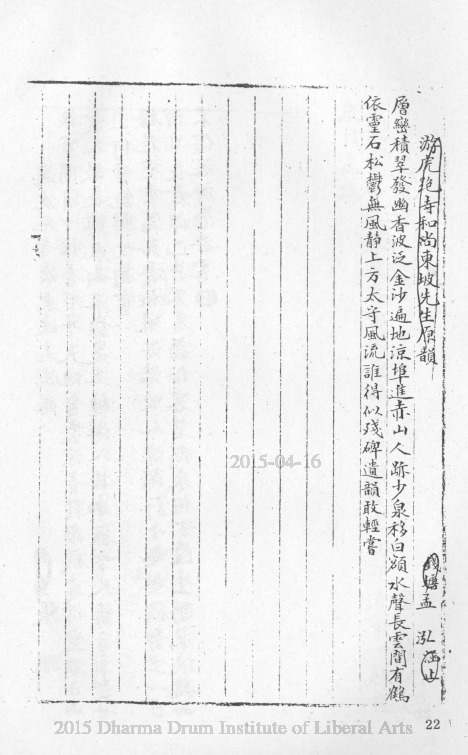 游虎跑寺和尚東坡先生原韻
錢塘孟 泓涵上
層巒積翠發幽香波泛金沙遍地涼埠進赤山人跡少泉移白額水聲長雲間有鶴
依靈石松鬱無風靜上方太守風流誰得似殘碑遺韻敢輕嘗
2015-04-16
2015 Dharma Drum Institute of Liberal Arts
22